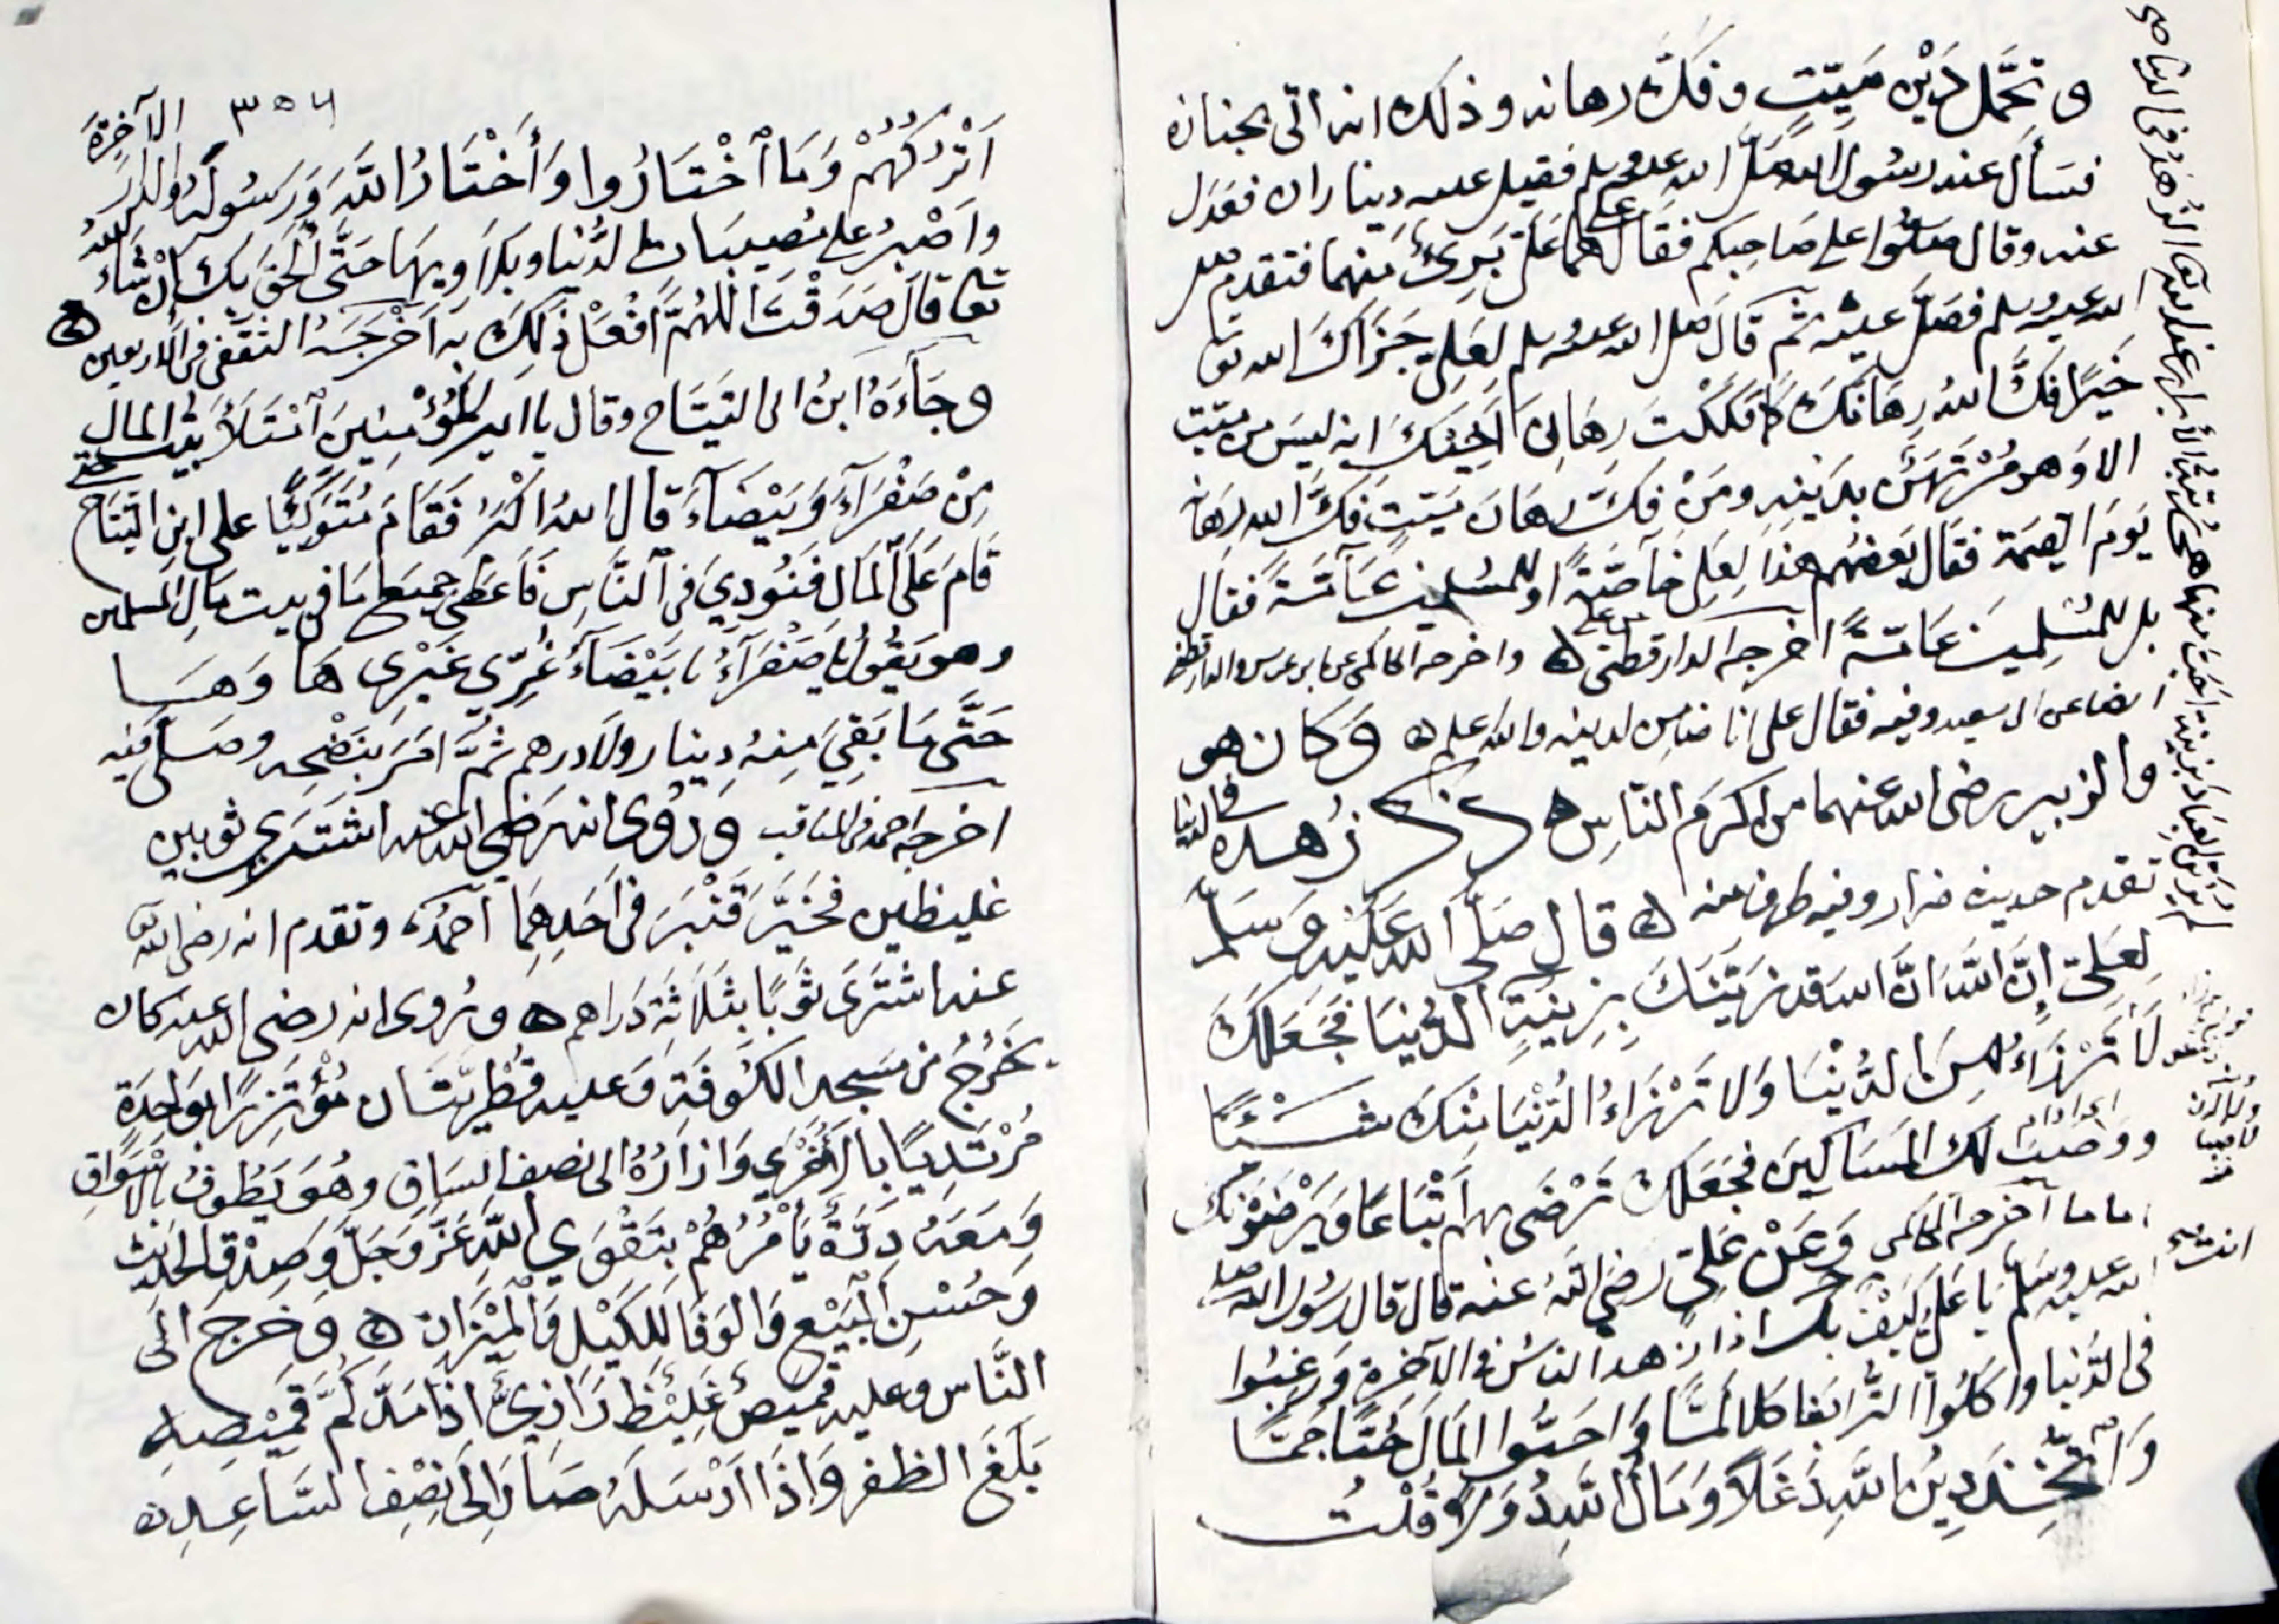 و تحمّل دَيْن مَيّتٍ وفكَّ رهانه وذلك انه اتى بجنازه
فسَأل عنه رسُول الله صلى الله عليه وسلم فقيل عليه ديناران فعَدَل
عنه وقال صَلّوا على صَاحبكم فقال علي هما عَلَيَّ بَرِئٌ منهما فتقدم صلى
الله عليه وسلم فصَلّى عليْه ثم قال صلى الله عليه وسلم لعَليّ جَزَاكَ الله تعا
خَيرًا فكَّ اللهُ رِهَانكَ كما فكَكْتَ رِهَان اَخِيْكَ انه ليسَ من ميّت
الا وَهو مُرْتهَنٌ بدَينهِ ومَنْ فكَّ رِهَانَ مَيّتٍ فكَّ الله رِهَانه
يَومَ القيمة فقال بَعضهم هذا لِعَلي خآصّةً او للمسْلمين عَآمّةً فقال
بل للمسْلمين عَامّةً اخرجه الدارقطني ه واخرجه الحاكمى عن ابن عباس والدارقطني
ايضا عن ابى سعيد وفيه فقال على انا ضامن لدينه والله اعلم ه وَكان هو
والزبير رضى الله عنهما من اكرم النّاس ه ذكر زُهده في الدّنيا
تقدم حديث ضرار وفيه طرف منه ه قال صَلّى الله عَليْهِ وَسَلّم
لِعَليّ إنَّ اللهَ قد زَيّنَكَ بِزِينَةٍ الدُّنيَا فَجَعَلكَ
لَا تَرْزَاءُ مِنَ الدُّنْيَا وَلا تَرْزَاءُ الدُّنْيَا مِنْكَ شَيْئًا
ووَصَبَ لك المَسَاكِينَ فجَعَلكَ تَرْضَى بهم اَتْبَاعًا وَيَرْضَوْنكَ
اماما اخرجه الحاكمى وَعَنْ عَلِيّ رضى اللهُ عنه قال قال رَسُول الله صلى
الله عليه وسلم يَا عَلِيّ كَيْفَ بك اذا زهد الناسُ في الآخرة وَرغبُوا
فى الدُّنيا واكلُوا التُّرَاثَ اكلا لَمًّا وَاحبّوا المَالَ حُبًّا جَمًّا
وَاتّخِذَ دِينَ اللهِ دَغَلاً وَمَالُ اللهِ دُوَلاً قُلْتُ
٣٥٤
اَتْرُكُهُمْ وَمَا اَخْتَارُوا وَأَخْتَارُ اللهَ وَرَسُولَهُ وَالدَّارَ الآخِرَةَ
واَصْبِرُ على مُصِيبَات الدُّنيا وبَلاَوِيهَا حَتّى اَلْحَقَ بِكَ اِنْ شَاءَ اللهُ
تعا قالَ صَدَقْتَ اللّهُمَّ افْعَلْ ذٰلِكَ بِهِ اَخْرَجَهُ الثقفى فى الاربعين ه
وجَآءَهُ ابنُ التَيّاح وقال يا امير المُؤْمِنِينَ امْتَلأَ بَيْتُ المالِ
مِنْ صَفْرَآءَ وَبَيْضَآءَ قال اللهُ اكْبَرُ فَقَامَ مُتَوَكِّئًا على ابن التيّاح حتى
قَامَ عَلَى المَالِ فَنُودِيَ فى النّاسِ فَاَعطَى جَمِيعَ مَا في بيت مَالِ المسلمين
وهو يَقُولُ يَا صَفْرَآءُ يا بَيْضَآءُ غُرّي غَيْرِى هَا وَهَـا
حَتَّى مَا بَقِيَ مِنهُ دِينار ولا درهم ثمَّ امَرَ بنَضْحِه وصَلّى فيه
اخرجه احمد فى المناقب ورُوى انه رَضِى الله عنه اشتَرى ثوبين
غليظين فخَيَّر قَنْبَرَ فى اَحَدِهِمَا اَحْمَدُ وتقدم انه رضى الله
عنه اشْتَرَى ثَوبًا بِثَلَاثَةِ دَرَاهم ه ورُوى انه رضى الله عنه كان
يَخرُجُ من مَسْجد الكُوفَةِ وَعليه قِطْرِيّتَانِ مُؤْتَزِرًا بوَاحِدَةٍ
مُرْتَدِيًا بالاُخْرَي وَازَارُهُ الى نصف السَاقِ وهُوَ يَطُوفُ بالاسْوَاقِ
وَمَعَهُ دِرَّةٌ يَأْمُرُهُمْ بتَقْوَي اللهِ عَزَّ وَجَلَّ وَصِدْقِ الحَدِيث
وَحُسْنِ الْبَيْعِ وَالوَفَا لِلكَيْلِ وَالْمِيْزَانِ ه وخرجَ الَى
النَّاس وعليه قَمِيصٌ غَلِيْظٌ رَازِيٌّ اذَا مَدَّ كُمَّ قَمِيْصِهِ
بَلَغَ الظفر وَاِذَا اَرْسَلَهُ صَارَ اِلَى نِصْفِ السَّاعِدِ